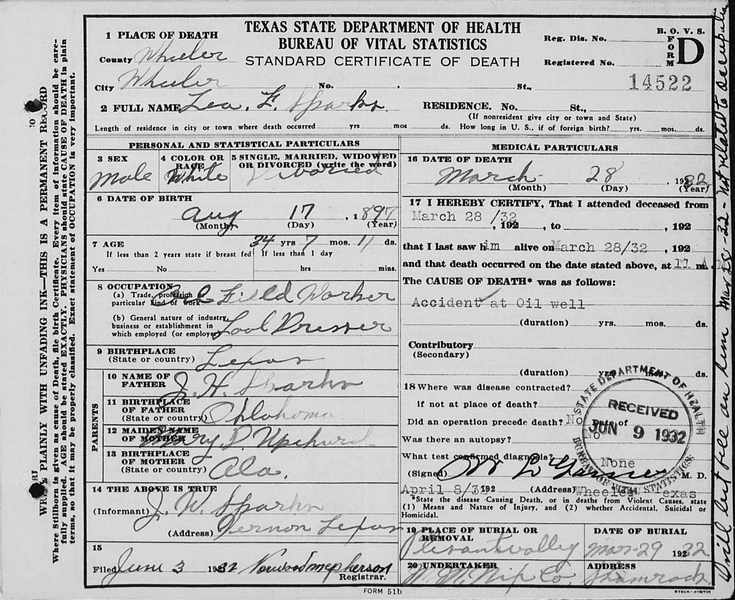 TEXAS STATE DEPARTMENT OF HEALTH
BUREAU OF VITAL STATISTICS
STANDARD CERTIFICATE OF DEATH
B. O. V. S.
FORM D
Reg. Dis. No.
Registered No.
14522
1 PLACE OF DEATH
County Wheeler
City Wheeler No. St.,
2 FULL NAME Leo. F. Sparks RESIDENCE. No. St.,
(If nonresident give city or town and State)
Length of residence in city or town where death occurred yrs. mos ds. How long in U. S., if of foreign birth? yrs. mos. ds.
PERSONAL AND STATISTICAL PARTICULARS
3 SEX Male
4 COLOR OR RACE White
5 SINGLE, MARRIED, WIDOWED OR DIVORCED (write the word)
6 DATE OF BIRTH
Aug 17 1897
(Month) (Day) (Year)
7 AGE 34 yrs 7 mos. 11 ds.
If less than 2 years state if breast fed If less than 1 day
Yes No hrs. min.
8 OCCUPATION
(a) Trade, profession or particular kind of work Field Worker
(b) General nature of industry, business or establishment in which employed (or employer) Tool Dresser
9 BIRTHPLACE
(State or country) Texas
PARENTS
10 NAME OF FATHER J. H. Sparks
11 BIRTHPLACE OF FATHER
(State or country) Oklahoma
12 MAIDEN NAME OF MOTHER Mary Upchurch
13 BIRTHPLACE OF MOTHER
(State or country) Ala.
14 THE ABOVE IS TRUE
(Informant) J. W. Sparks
(Address) Vernon Texas
15
Filed June 3 1932 Norwood McPherson
Registrar.
MEDICAL PARTICULARS
16 DATE OF DEATH
March 28 1932
(Month) (Day) (Year)
17 I HEREBY CERTIFY, That I attended deceased from
March 28 /32, 192 to , 192
that I last saw him alive on March 28/32, 192
and that death occurred on the date stated above, at 11 A.
The CAUSE OF DEATH* was as follows:
Accident at Oil well
(duration) yrs. mos. ds.
Contributory
(Secondary)
(duration) yrs. mos. ds.
18 Where was disease contracted?
if not at place of death?
Did an operation precede death? No Date of
Was there an autopsy? No
What test confirmed diagnosis? None
(Signed) M. D.
April 8/32 192 (Address) Wheeler Texas
*State the disease Causing Death, or in deaths from Violent Causes, state
(1) Means and Nature of Injury, and (2) whether Accidental, Suicidal or
Homicidal.
STATE DEPARTMENT OF HEALTH
RECEIVED
JUN 9 1932
BUREAU OF VITAL STATISTICS
19 PLACE OF BURIAL OR REMOVAL
DATE OF BURIAL
Mar-29 1932
20 UNDERTAKER
ADDRESS
Shamrock
FORM 51b
WRITE PLAINLY WITH UNFADING INK—THIS IS A PERMANENT RECORD
Where Stillborn is given as cause of Death, file birth Certificate. Every item of information should be carefully supplied. AGE should be stated EXACTLY. PHYSICIANS should state CAUSE OF DEATH in plain terms, that it may be properly classified. Exact statement of OCCUPATION is very important.
Drill bit fell on him Mar-28-32 - not related to occupation